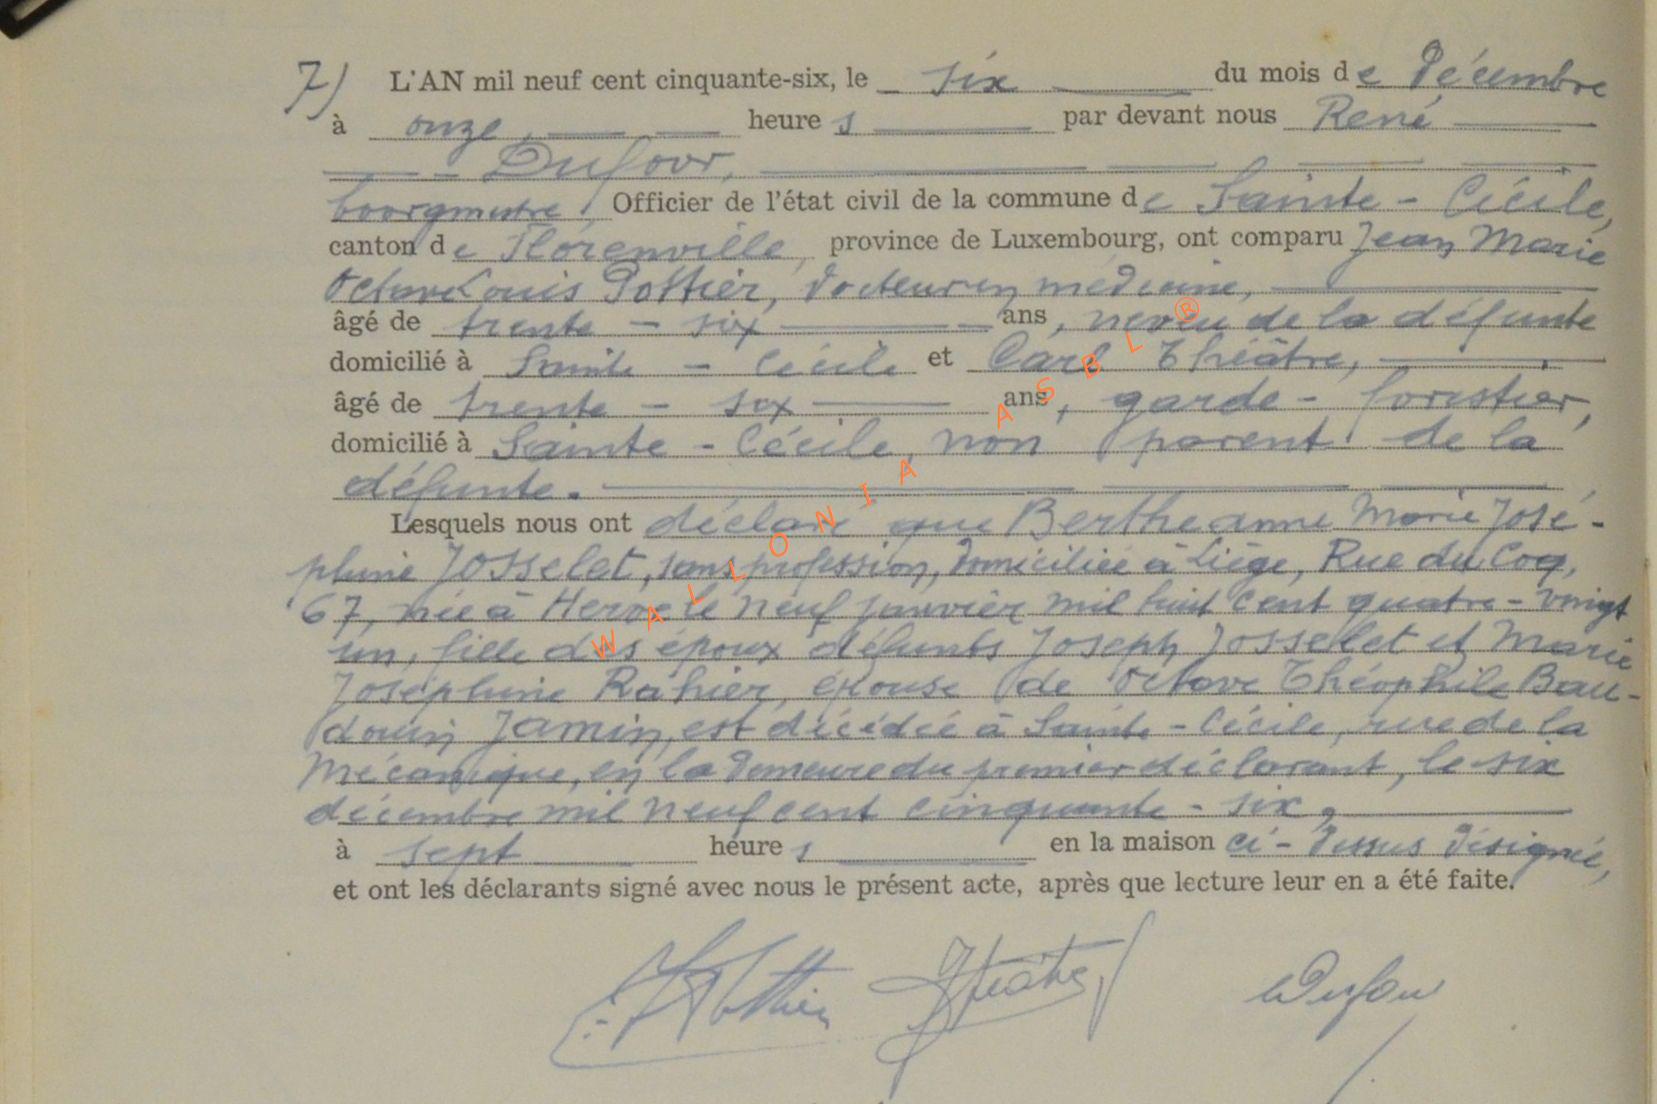 7) L'AN mil neuf cent cinquante-six, le six du mois de Décembre
à onze, heures par devant nous René
Dufour,
bourgmestre, Officier de l'état civil de la commune de Sainte-Cécile,
canton de Florenville, province de Luxembourg, ont comparu Jean Marie
Octave Louis Pottier, docteur en médecine,
âgé de trente-six ans, neveu de la défunte
domicilié à Sainte-Cécile et Carl Théâtre,
âgé de trente-six ans, garde-forestier,
domicilié à Sainte-Cécile, non parent de la
défunte.
Lesquels nous ont déclaré que Berthe Anne Marie José-
phine Josselet, sans profession, domiciliée à Liège, Rue du Coq,
67, née à Herve le neuf janvier mil huit cent quatre-vingt
un, fille des époux défunts Joseph Josselet et Marie
Joséphine Rahier, épouse de Octave Théophile Bau-
douin Jamin, est décédée à Sainte-Cécile, rue de la
Mécanique, en la demeure du premier déclarant, le six
décembre mil neuf cent cinquante-six,
à sept heures en la maison ci-dessus désignée,
et ont les déclarants signé avec nous le présent acte, après que lecture leur en a été faite.
Pottier Théâtre Dufour
WALLONIA ASBL ®